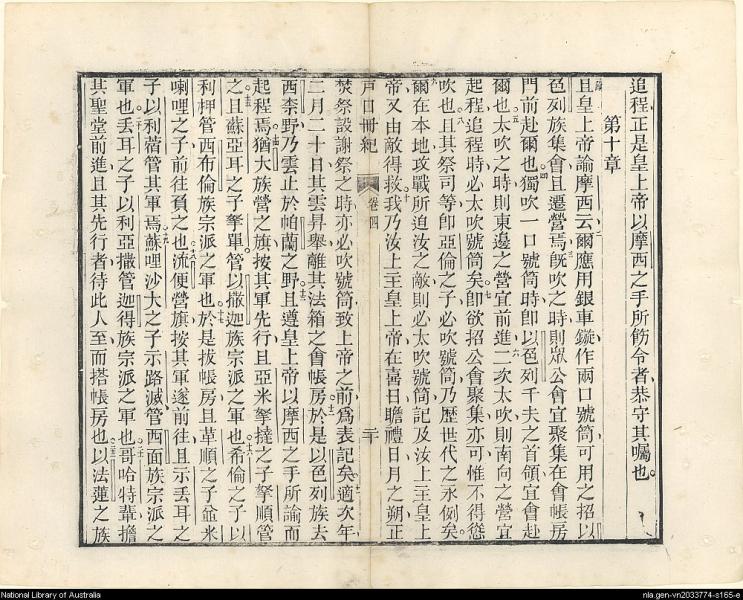 追程正是皇上帝以摩西之手所飭令者恭守其囑也
第十章
且皇上帝諭摩西云爾應用銀車鏇作兩口號筒可用之招以
色列族集會且遷營焉旣吹之時則眾公會宜聚集在會帳房
門前赴爾也獨吹一口號筒時卽以色列千夫之首領宜會赴
爾也太吹之時則東邊之營宜前進二次太吹則南向之營宜
起程追程時必太吹號筒矣卽欲招公會聚集亦可惟不得慫
吹也且其祭司等卽亞倫之子必吹號筒乃歷世代之永例矣
爾在本地攻戰所迫汝之敵則必太吹號筒記及汝上主皇上
帝又由敵得救我乃汝上主皇上帝在喜日瞻禮日月之朔正
戶口冊紀 卷四 二十
焚祭設謝祭之時亦必吹號筒致上帝之前為表記矣適次年
二月二十日其雲昇舉離其法箱之會帳房於是以色列族去
西柰野乃雲止於帕蘭之野且遵皇上帝以摩西之手所諭而
起程焉猶大族營之旗按其軍先行且亞米拏撻之子拏順管
之且蘇亞耳之子拏單管以撒迦族宗派之軍也希倫之子以
利押管西布倫族宗派之軍也於是拔帳房且革順之子並米
喇哩之子前往負之也流便營旗按其軍遂前往且示丟耳之
子以利蓿管其軍焉蘇哩沙大之子示路滅管西面族宗派之
軍也丟耳之子以利亞撒管迦得族宗派之軍也哥哈特輩擔
其聖堂前進且其先行者待此人至而搭帳房也以法蓮之族
National Library of Australia
nla.gen-vn2033774-s165-e